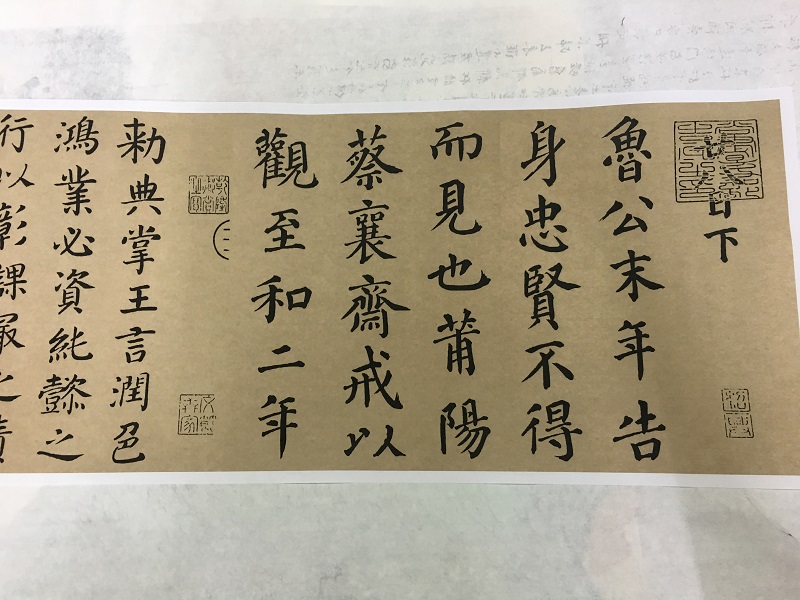 日下
魯公末年告
身忠賢不得
而見也莆陽
蔡襄齋戒以
觀至和二年
勅典掌王言潤色
鴻業必資純懿之
行以彰課最之